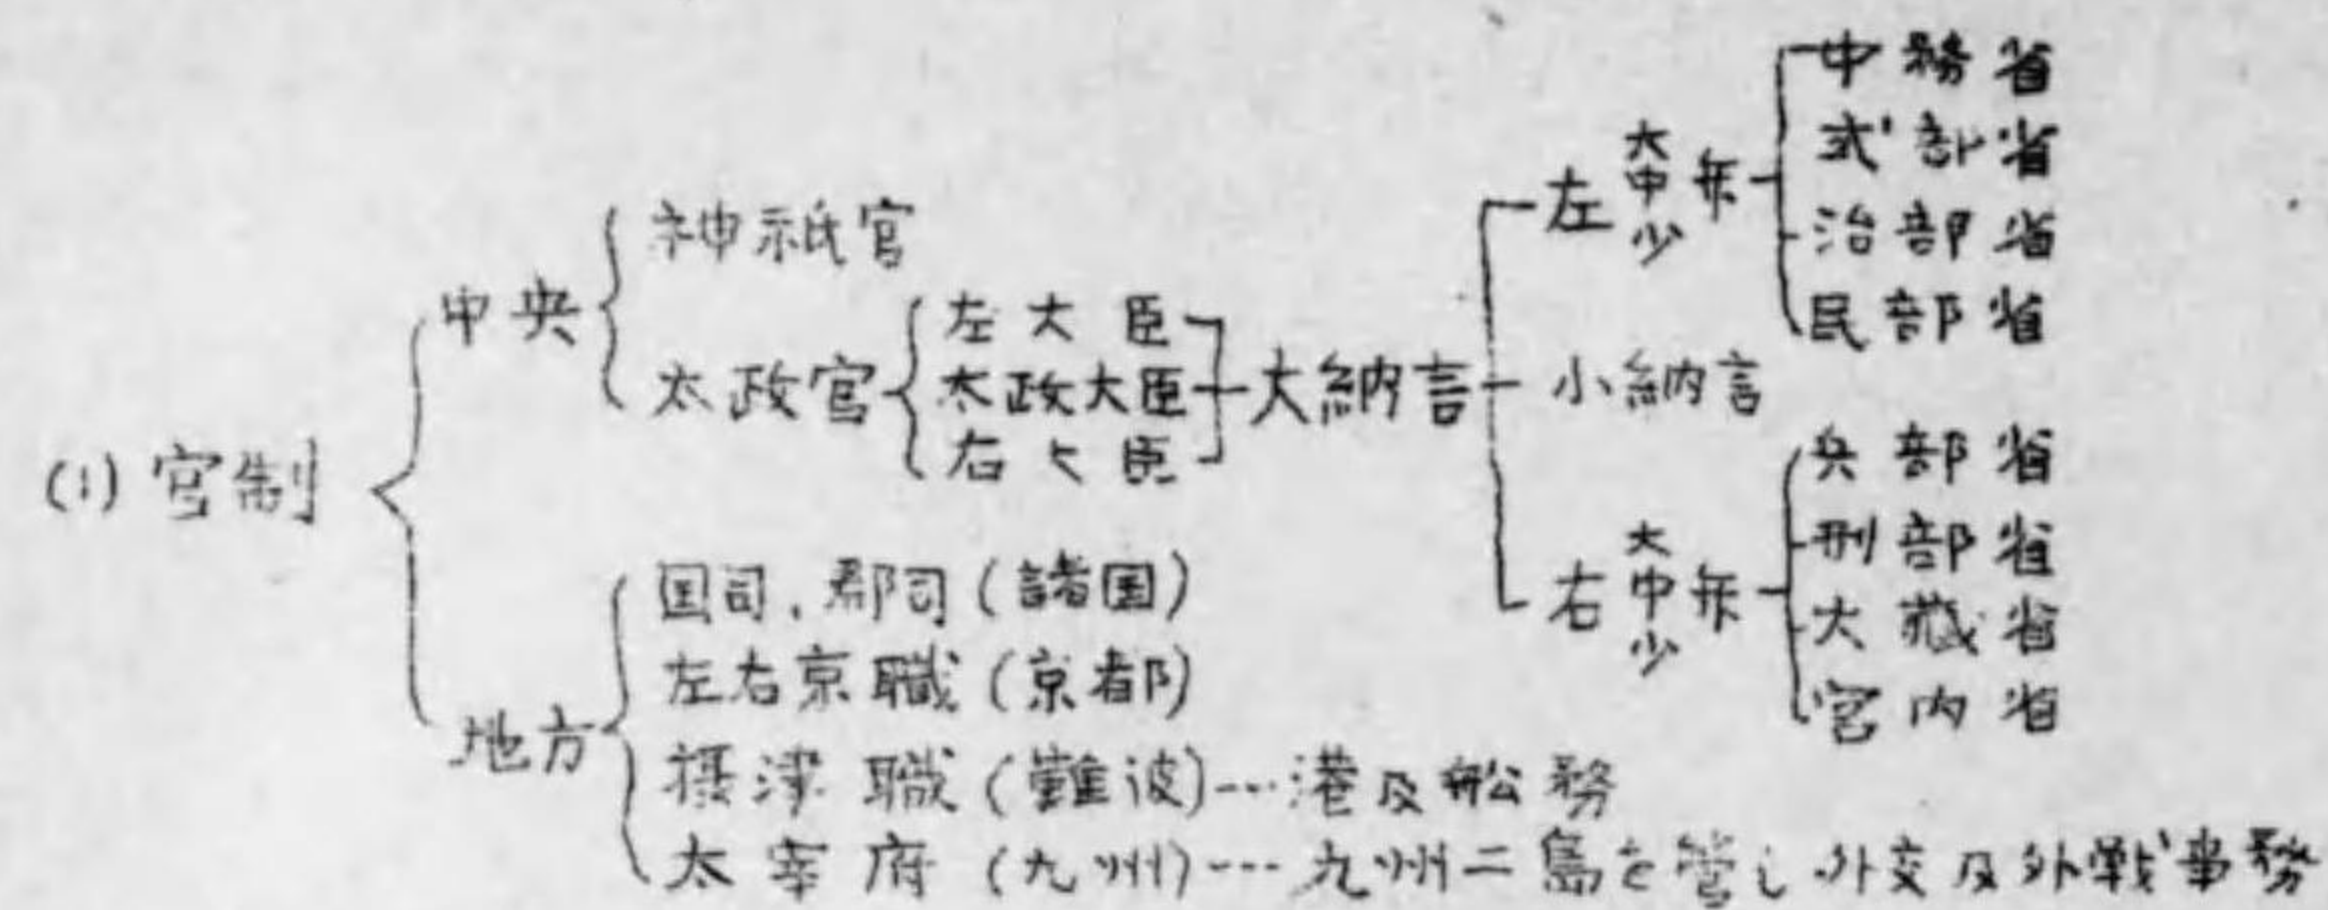 (1) 官制
中央
神祇官
太政官
左大臣
太政大臣
右大臣
大納言
左 大中少 弁
中務省
式部省
治部省
民部省
小納言
右 大中少 弁
兵部省
刑部省
大蔵省
宮内省
地方
国司、郡司(諸国)
左右京職(京都)
摂津職(難波)…港及船務
太宰府(九州)…九州二島を管し外交及外戦事務